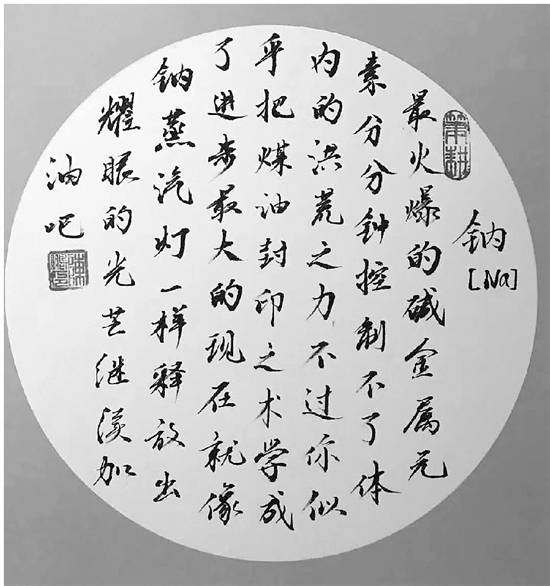 钠
[Na]
筆耕
最火爆的碱金属元
素分分钟控制不了体
内的洪荒之力不过你似
乎把煤油封印之术学成
了进步最大的现在就像
钠蒸汽灯一样释放出
耀眼的光芒继续加
油吧